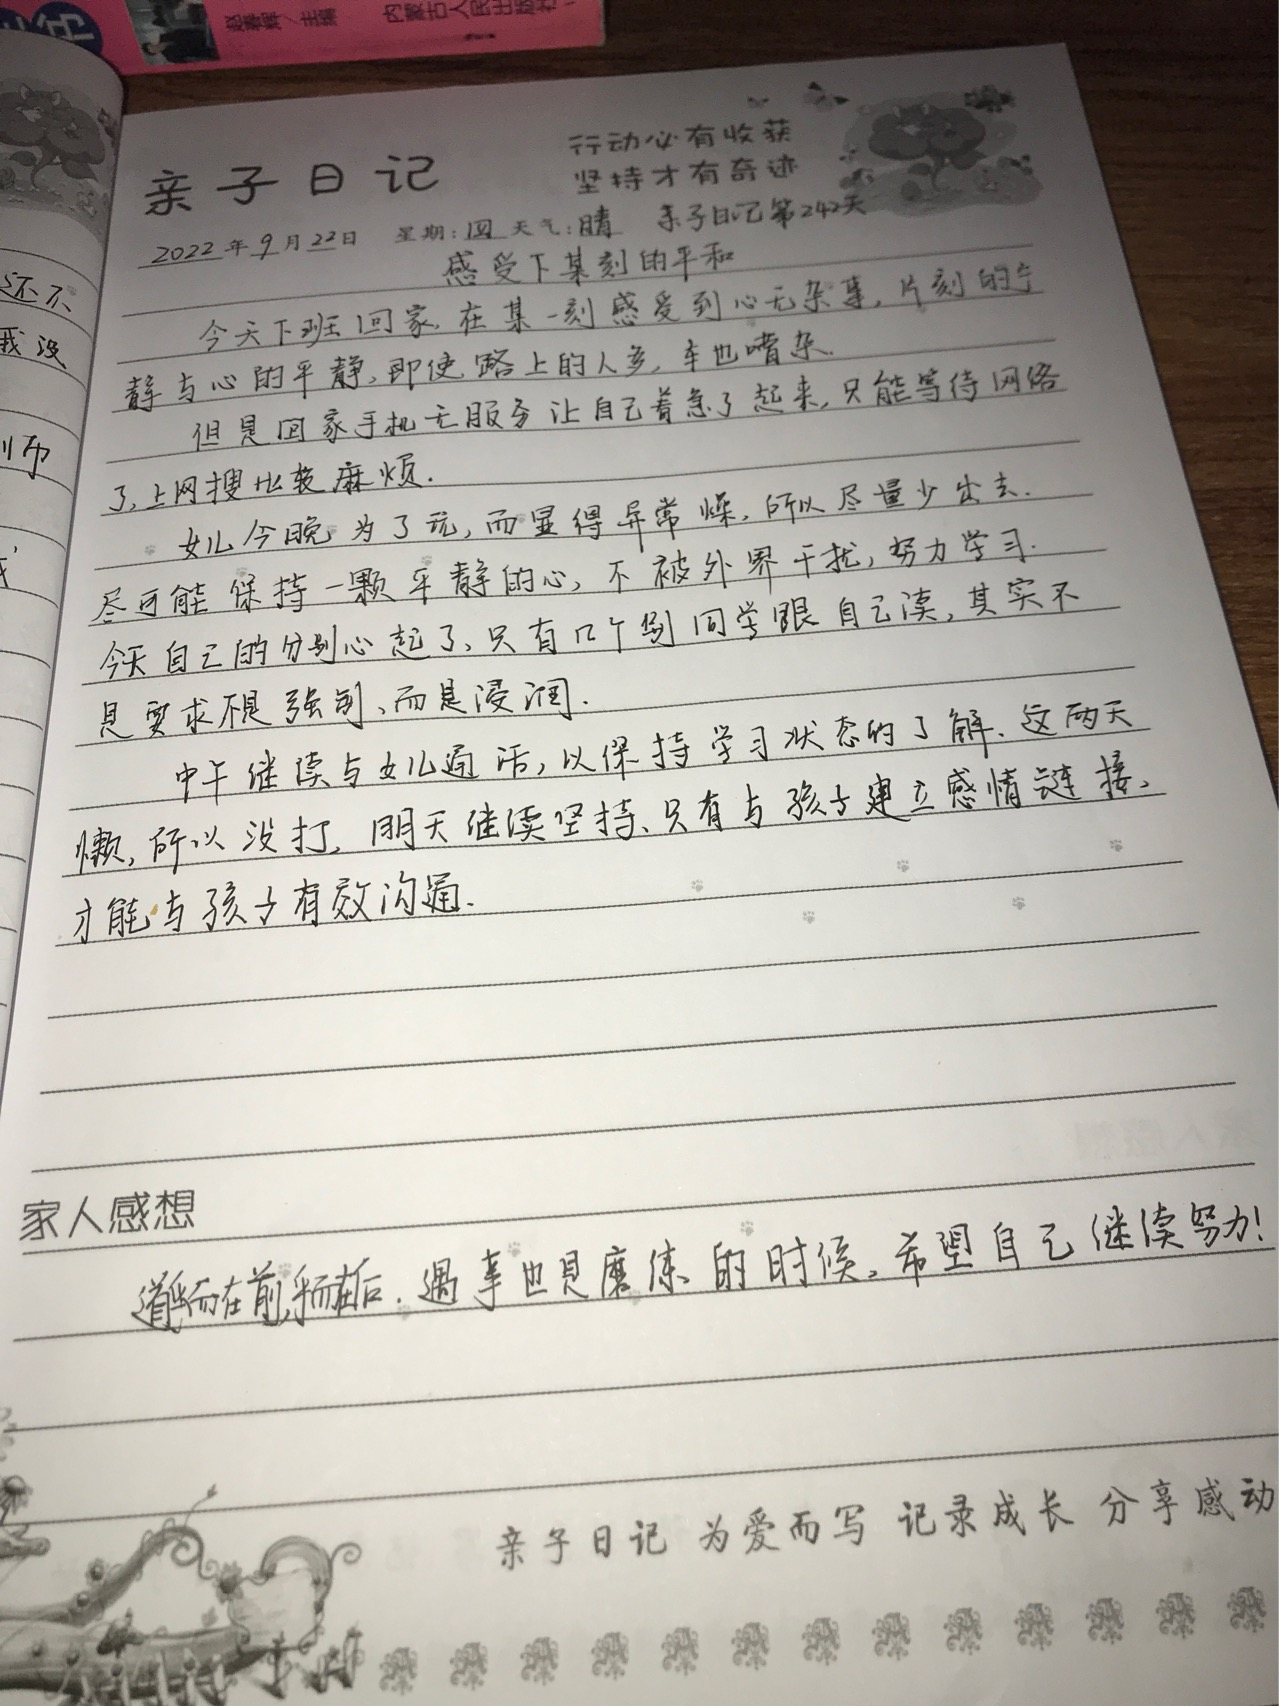 赵春辉/主编
内蒙古人民出版社
还不
我没
亲子日记
行动必有收获
坚持才有奇迹
2022年9月22日 星期:四 天气:晴 亲子日记第242天
感受下某刻的平和
今天下班回家,在某一刻感受到心无杂事,片刻的宁
静与心的平静,即使路上的人多,车也嘈杂.
但是回家手机无服务让自己着急了起来,只能等待网络
了,上网搜比较麻烦.
女儿今晚为了玩,而显得异常燥,所以尽量少出去.
尽可能保持一颗平静的心,不被外界干扰,努力学习.
今天自己的分别心起了,只有几个别同学跟自己读,其实不
是要求不是强制、而是浸润.
中午继续与女儿通话,以保持学习状态的了解.这两天
懒,所以没打,明天继续坚持、只有与孩子建立感情链接,
才能与孩子有效沟通.
家人感想
在前,在后.遇事也是磨练的时候,希望自己继续努力!
亲子日记 为爱而写 记录成长 分享感动